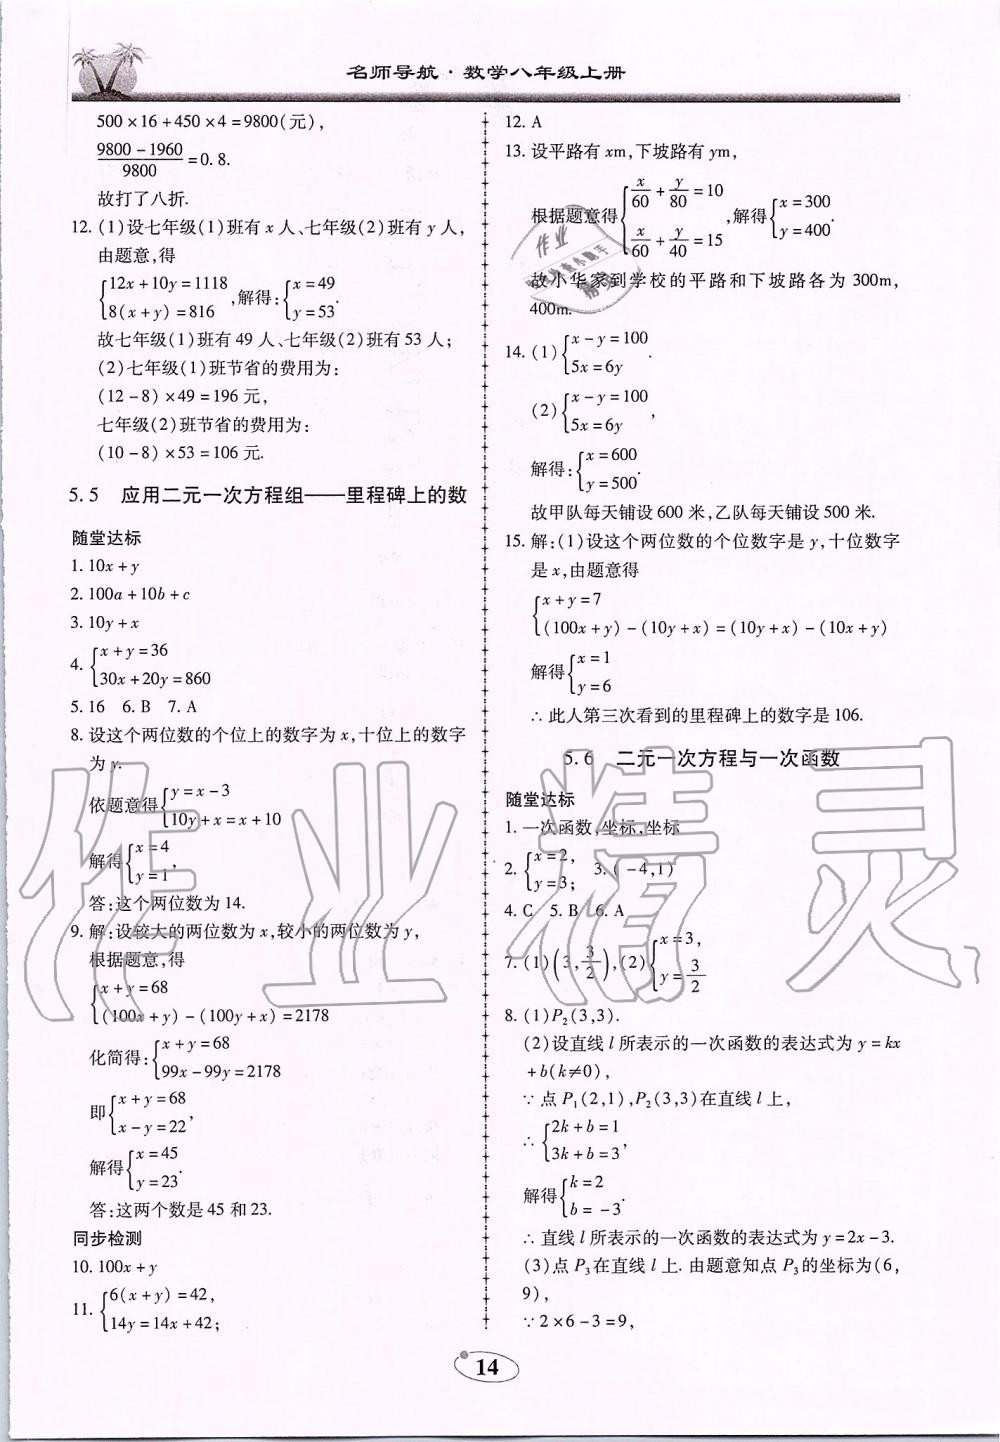 名师导航·数学八年级上册
500×16+450×4=9800(元),
(9800-1960)/9800=0.8.
故打了八折.
12. (1)设七年级(1)班有 x 人、七年级(2)班有 y 人,
由题意,得
{12x+10y=1118
8(x+y)=816 ,解得:{x=49
y=53.
故七年级(1)班有 49 人、七年级(2)班有 53 人;
(2)七年级(1)班节省的费用为:
(12-8)×49=196 元,
七年级(2)班节省的费用为:
(10-8)×53=106 元.
5.5 应用二元一次方程组——里程碑上的数
随堂达标
1. 10x+y
2. 100a+10b+c
3. 10y+x
4. {x+y=36
30x+20y=860
5. 16 6. B 7. A
8. 设这个两位数的个位上的数字为 x,十位上的数字
为 y.
依题意得{y=x-3
10y+x=x+10
解得{x=4
y=1,
答:这个两位数为 14.
9. 解:设较大的两位数为 x,较小的两位数为 y,
根据题意,得
{x+y=68
(100x+y)-(100y+x)=2178
化简得:{x+y=68
99x-99y=2178
即{x+y=68
x-y=22,
解得{x=45
y=23.
答:这两个数是 45 和 23.
同步检测
10. 100x+y
11. {6(x+y)=42,
14y=14x+42;
12. A
13. 设平路有 xm,下坡路有 ym,
根据题意得{x/60+y/80=10
x/60+y/40=15 ,解得{x=300
y=400.
故小华家到学校的平路和下坡路各为 300m,
400m.
14. (1){x-y=100
5x=6y .
(2){x-y=100
5x=6y ,
解得:{x=600
y=500.
故甲队每天铺设 600 米,乙队每天铺设 500 米.
15. 解:(1)设这个两位数的个位数字是 y,十位数字
是 x,由题意得
{x+y=7
(100x+y)-(10y+x)=(10y+x)-(10x+y)
解得{x=1
y=6
∴此人第三次看到的里程碑上的数字是 106.
5.6 二元一次方程与一次函数
随堂达标
1. 一次函数,坐标,坐标
2. {x=2,
y=3; 3. (-4,1)
4. C 5. B 6. A
7. (1)(3,3/2),(2){x=3,
y=3/2
8. (1)P₂(3,3).
(2)设直线 l 所表示的一次函数的表达式为 y=kx
+b(k≠0),
∵点 P₁(2,1),P₂(3,3)在直线 l 上,
∴{2k+b=1
3k+b=3,
解得{k=2
b=-3.
∴直线 l 所表示的一次函数的表达式为 y=2x-3.
(3)点 P₃在直线 l 上. 由题意知点 P₃的坐标为(6,
9),
∵2×6-3=9,
14
作业精灵